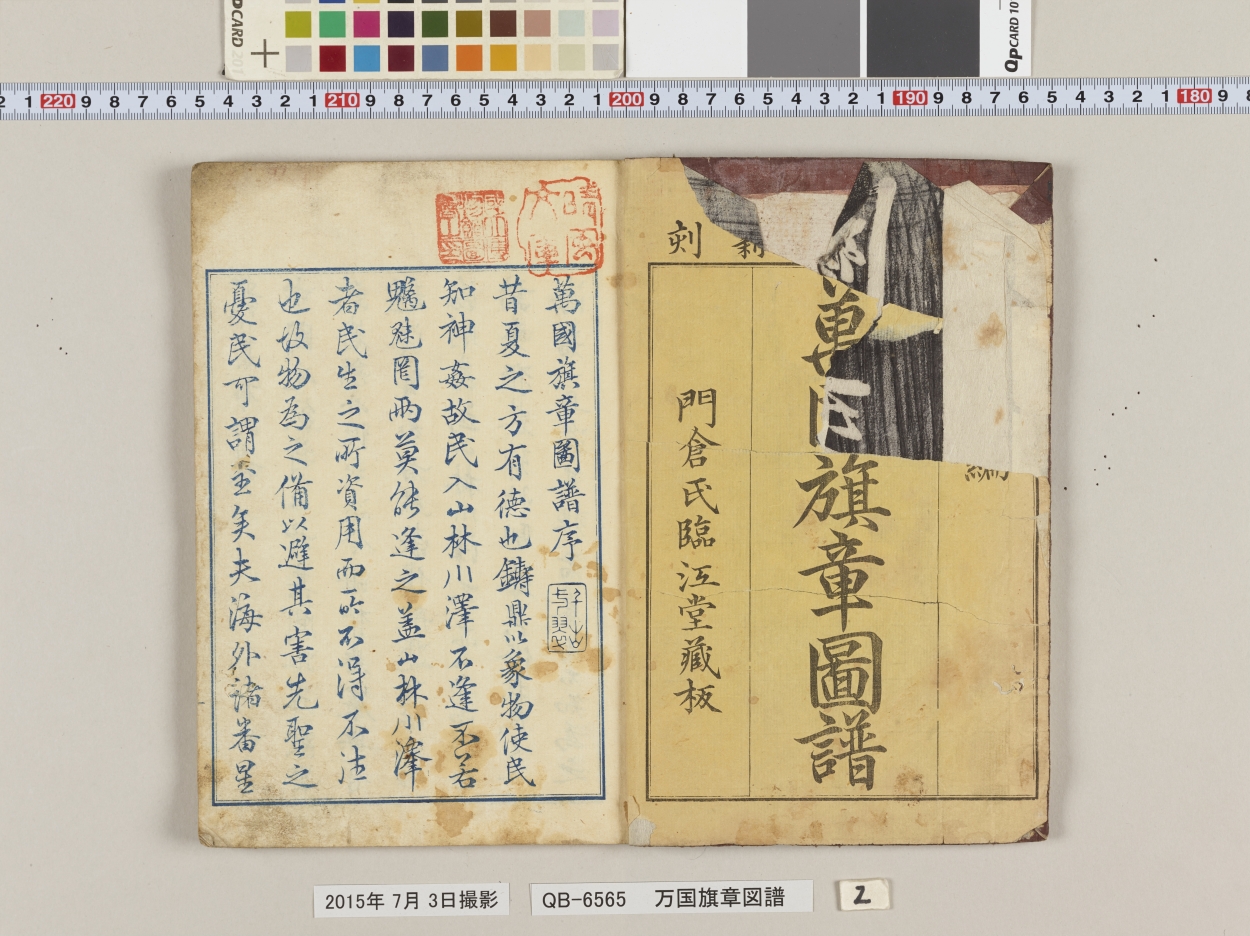 QPCARD 201
QPCARD 10
2 1 220 9 8 7 6 5 4 3 2 1 210 9 8 7 6 5 4 3 2 1 200 9 8 7 6 5 4 3 2 1 190 9 8 7 6 5 4 3 2 1 180 9 8
編
萬國旗章圖譜
刻
門倉氏臨江堂藏板
萬國旗章圖譜序
昔夏之方有德也鑄鼎以象物使民
知神姦故民入山林川澤不逢不若
魑魅罔兩莫能逢之蓋山林川澤
者民生之所資用而所不得不往
也故物為之備以避其害先聖之
憂民可謂至矣夫海外諸番星
2015年 7月 3日撮影
QB-6565 万国旗章図譜
2